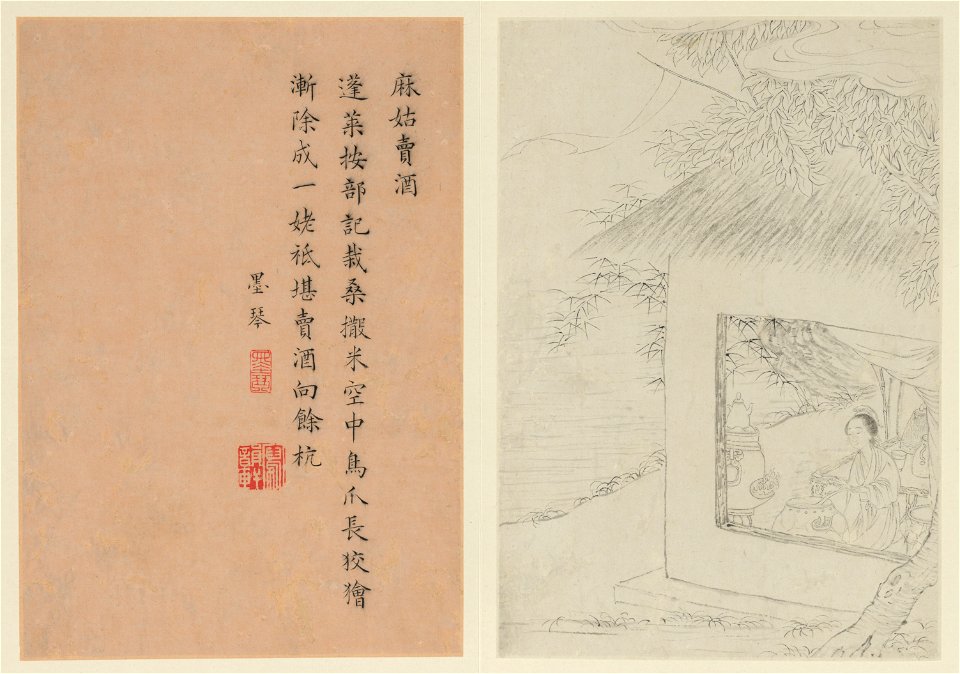 麻姑賣酒
蓬萊按部記栽桑撒米空中鳥爪長狡獪
漸除成一姥祇堪賣酒向餘杭
墨琴